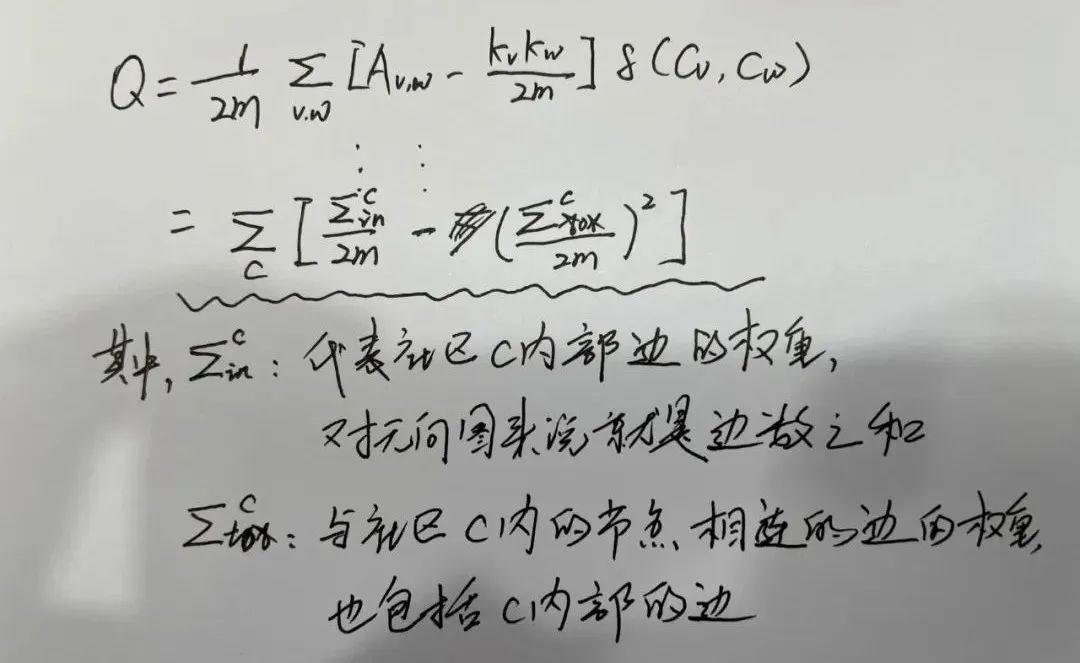 Q = 1/2m Σ_{v,w} [A_{v,w} - k_v k_w / 2m] δ(C_v, C_w)
⋮ ⋮
= Σ_C [Σ_in^C / 2m - (Σ_tot^C / 2m)^2]
其中, Σ_in^C: 代表社区C内部边的权重,
对无向图来说就是边数之和
Σ_tot^C: 与社区C内的节点相连的边的权重,
也包括C内部的边